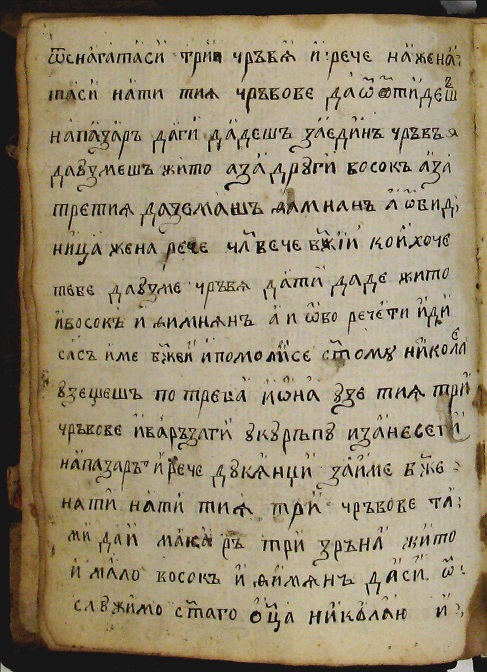 ѿснагатаси три чръвѧ и рече на жена
таси нати тиꙗ чръвове да ѿтидешъ
на пазаръ даги дадешъ за единъ чръвъꙗ
даꙋземешъ жито а за дрꙋги восокъ а за
третиꙗ да земашъ ѳимианъ а ѡвид
ница жена рече чл҃вече бж҃їи кои хоче
тебе да ꙋзме чръвꙗ дати даде жито
и восокъ и ѳимиꙗнъ а и ѡво рече ти иди
сасъ име бж҃ей и помоли се ст҃омꙋ николае
ꙋзешешъ по треба и ѡна ꙋзе тиꙗ три
чръвове и варъзалги ꙋ кꙋрпꙋ и занесе ги
на пазаръ и рече дꙋкꙗнци за име бж҃е
нати нати тиꙗ три чръвове та
ми даи макаръ три зръна жито
и мало восокъ и ѳимꙗнъ да си ѿ
слꙋжимо ст҃аго ѻц҃а николаю и